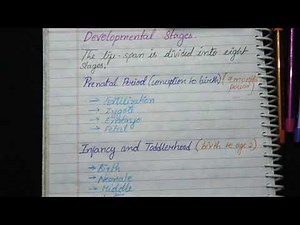 Developmental Stages.
The life-span is divided into eight
stages.
Prenatal Period (conception to birth) (9 month
period)
→ Fertilization
→ Zygote
→ Embryo
→ Fetal
Infancy and Toddlerhood (birth to age 2)
→ Birth
→ Neonate
→ Middle